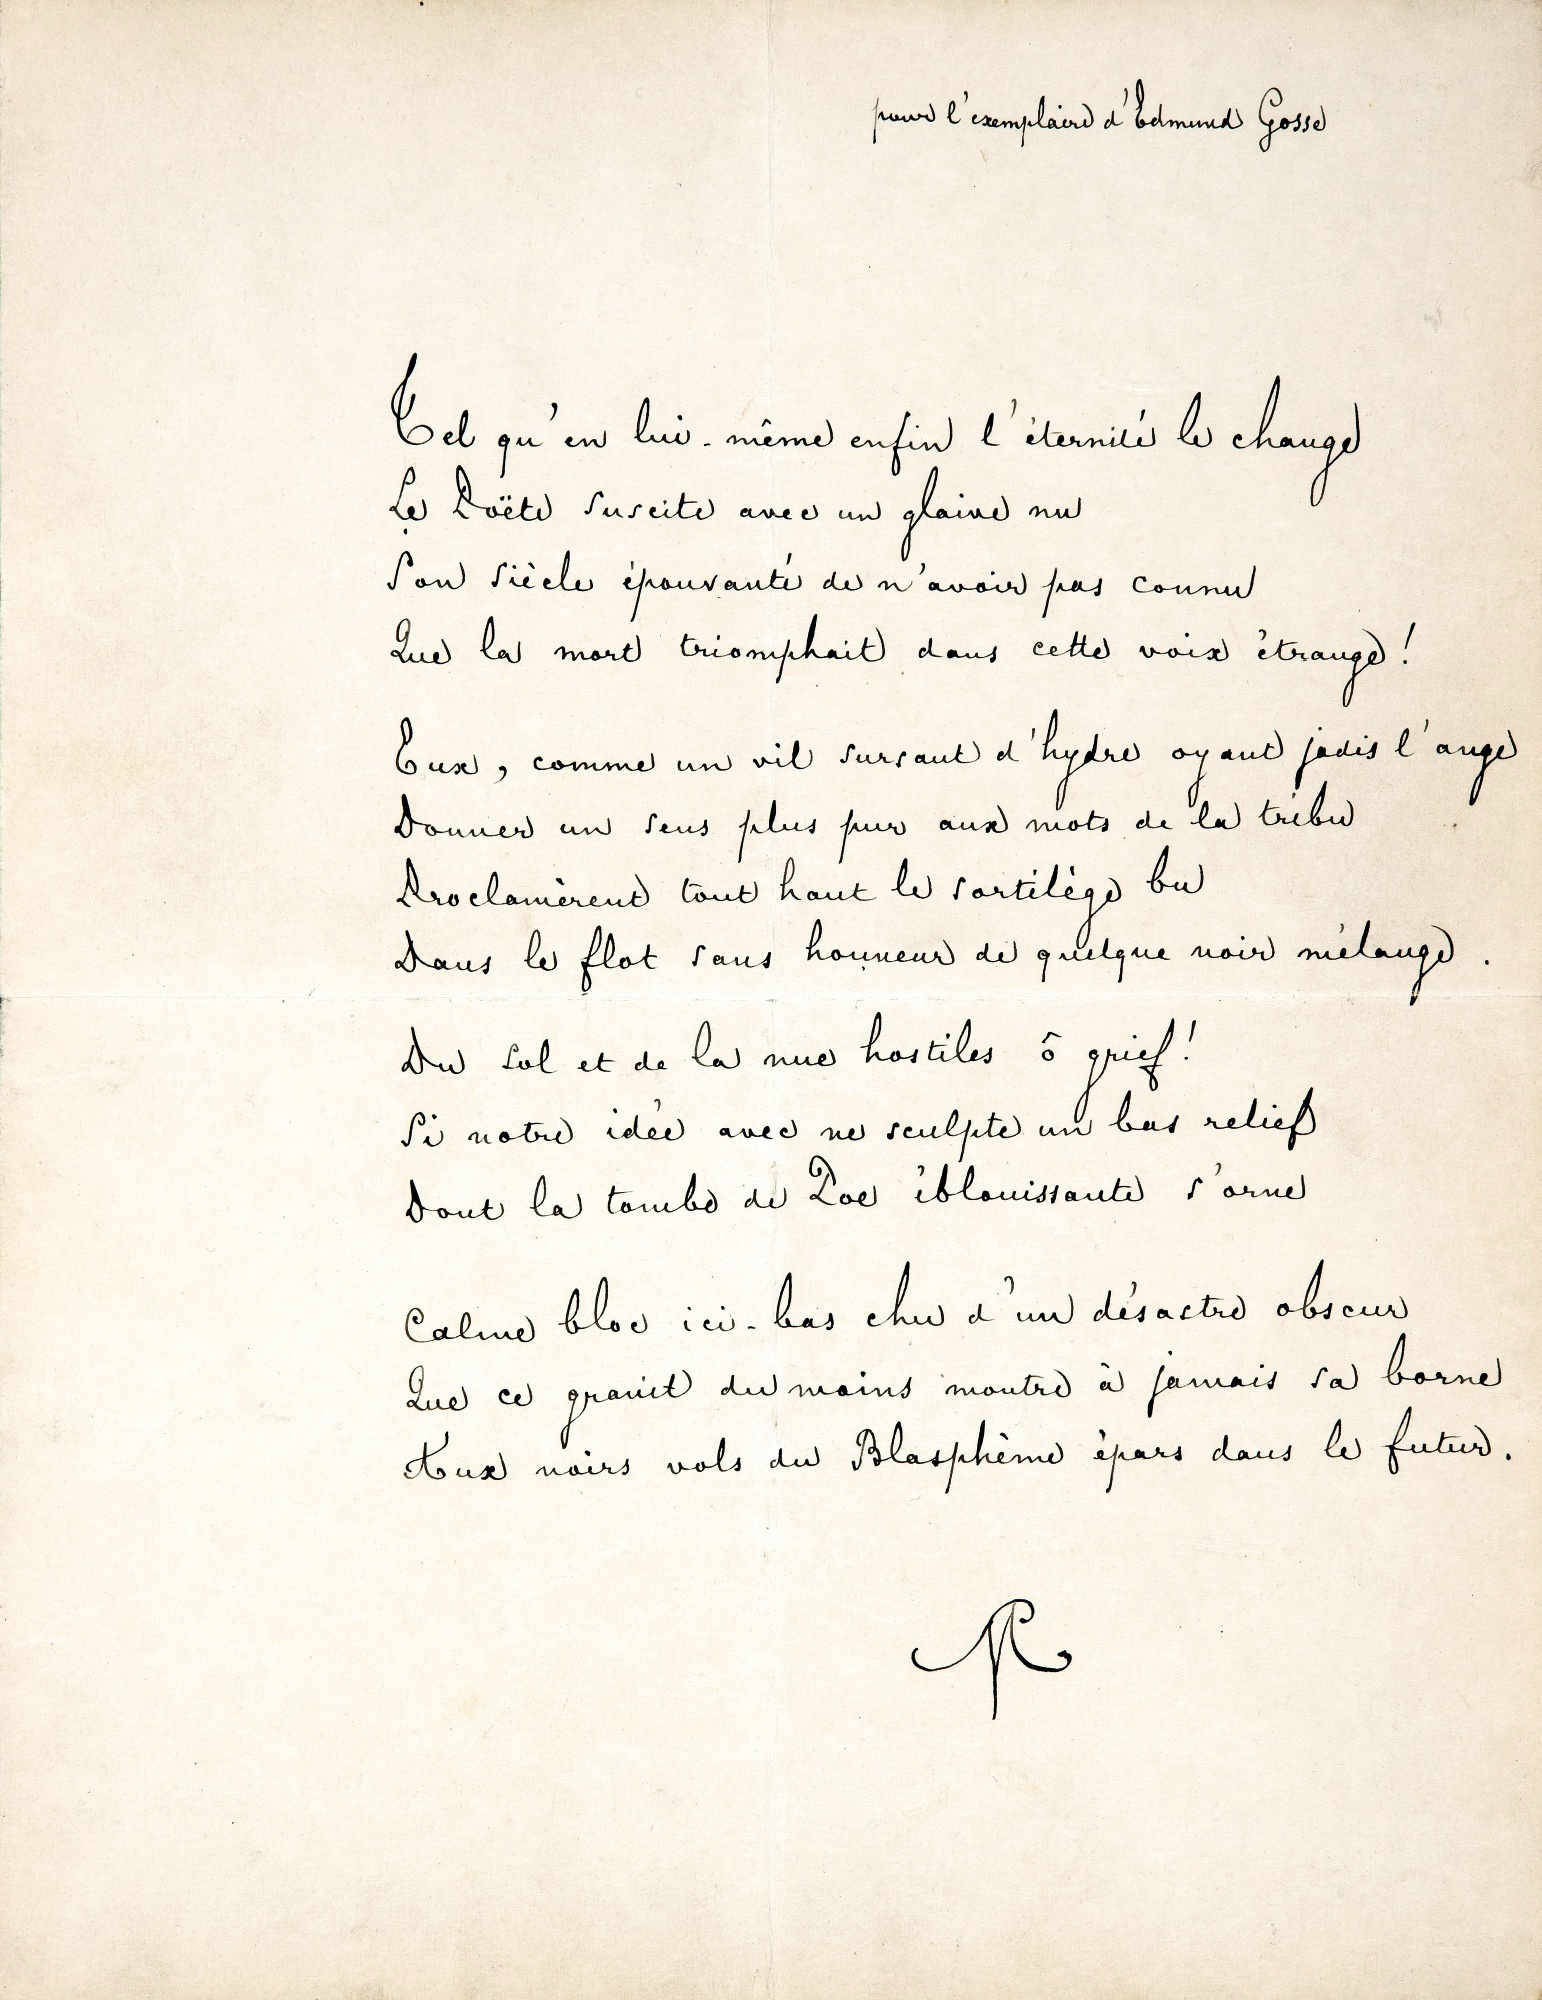 pour l'exemplaire d'Edmund Gosse
Tel qu'en lui-même enfin l'éternité le change
Le Poëte suscite avec un glaive nu
Son siècle épouvanté de n'avoir pas connu
Que la mort triomphait dans cette voix étrange !
Eux, comme un vil sursaut d'hydre oyant jadis l'ange
Donner un sens plus pur aux mots de la tribu
Proclamèrent tout haut le sortilège bu
Dans le flot sans honneur de quelque noir mélange.
Du sol et de la nue hostiles ô grief !
Si notre idée avec ne sculpte un bas relief
Dont la tombe de Poe éblouissante s'orne
Calme bloc ici-bas chu d'un désastre obscur
Que ce granit du moins montre à jamais sa borne
Aux noirs vols du Blasphème épars dans le futur.